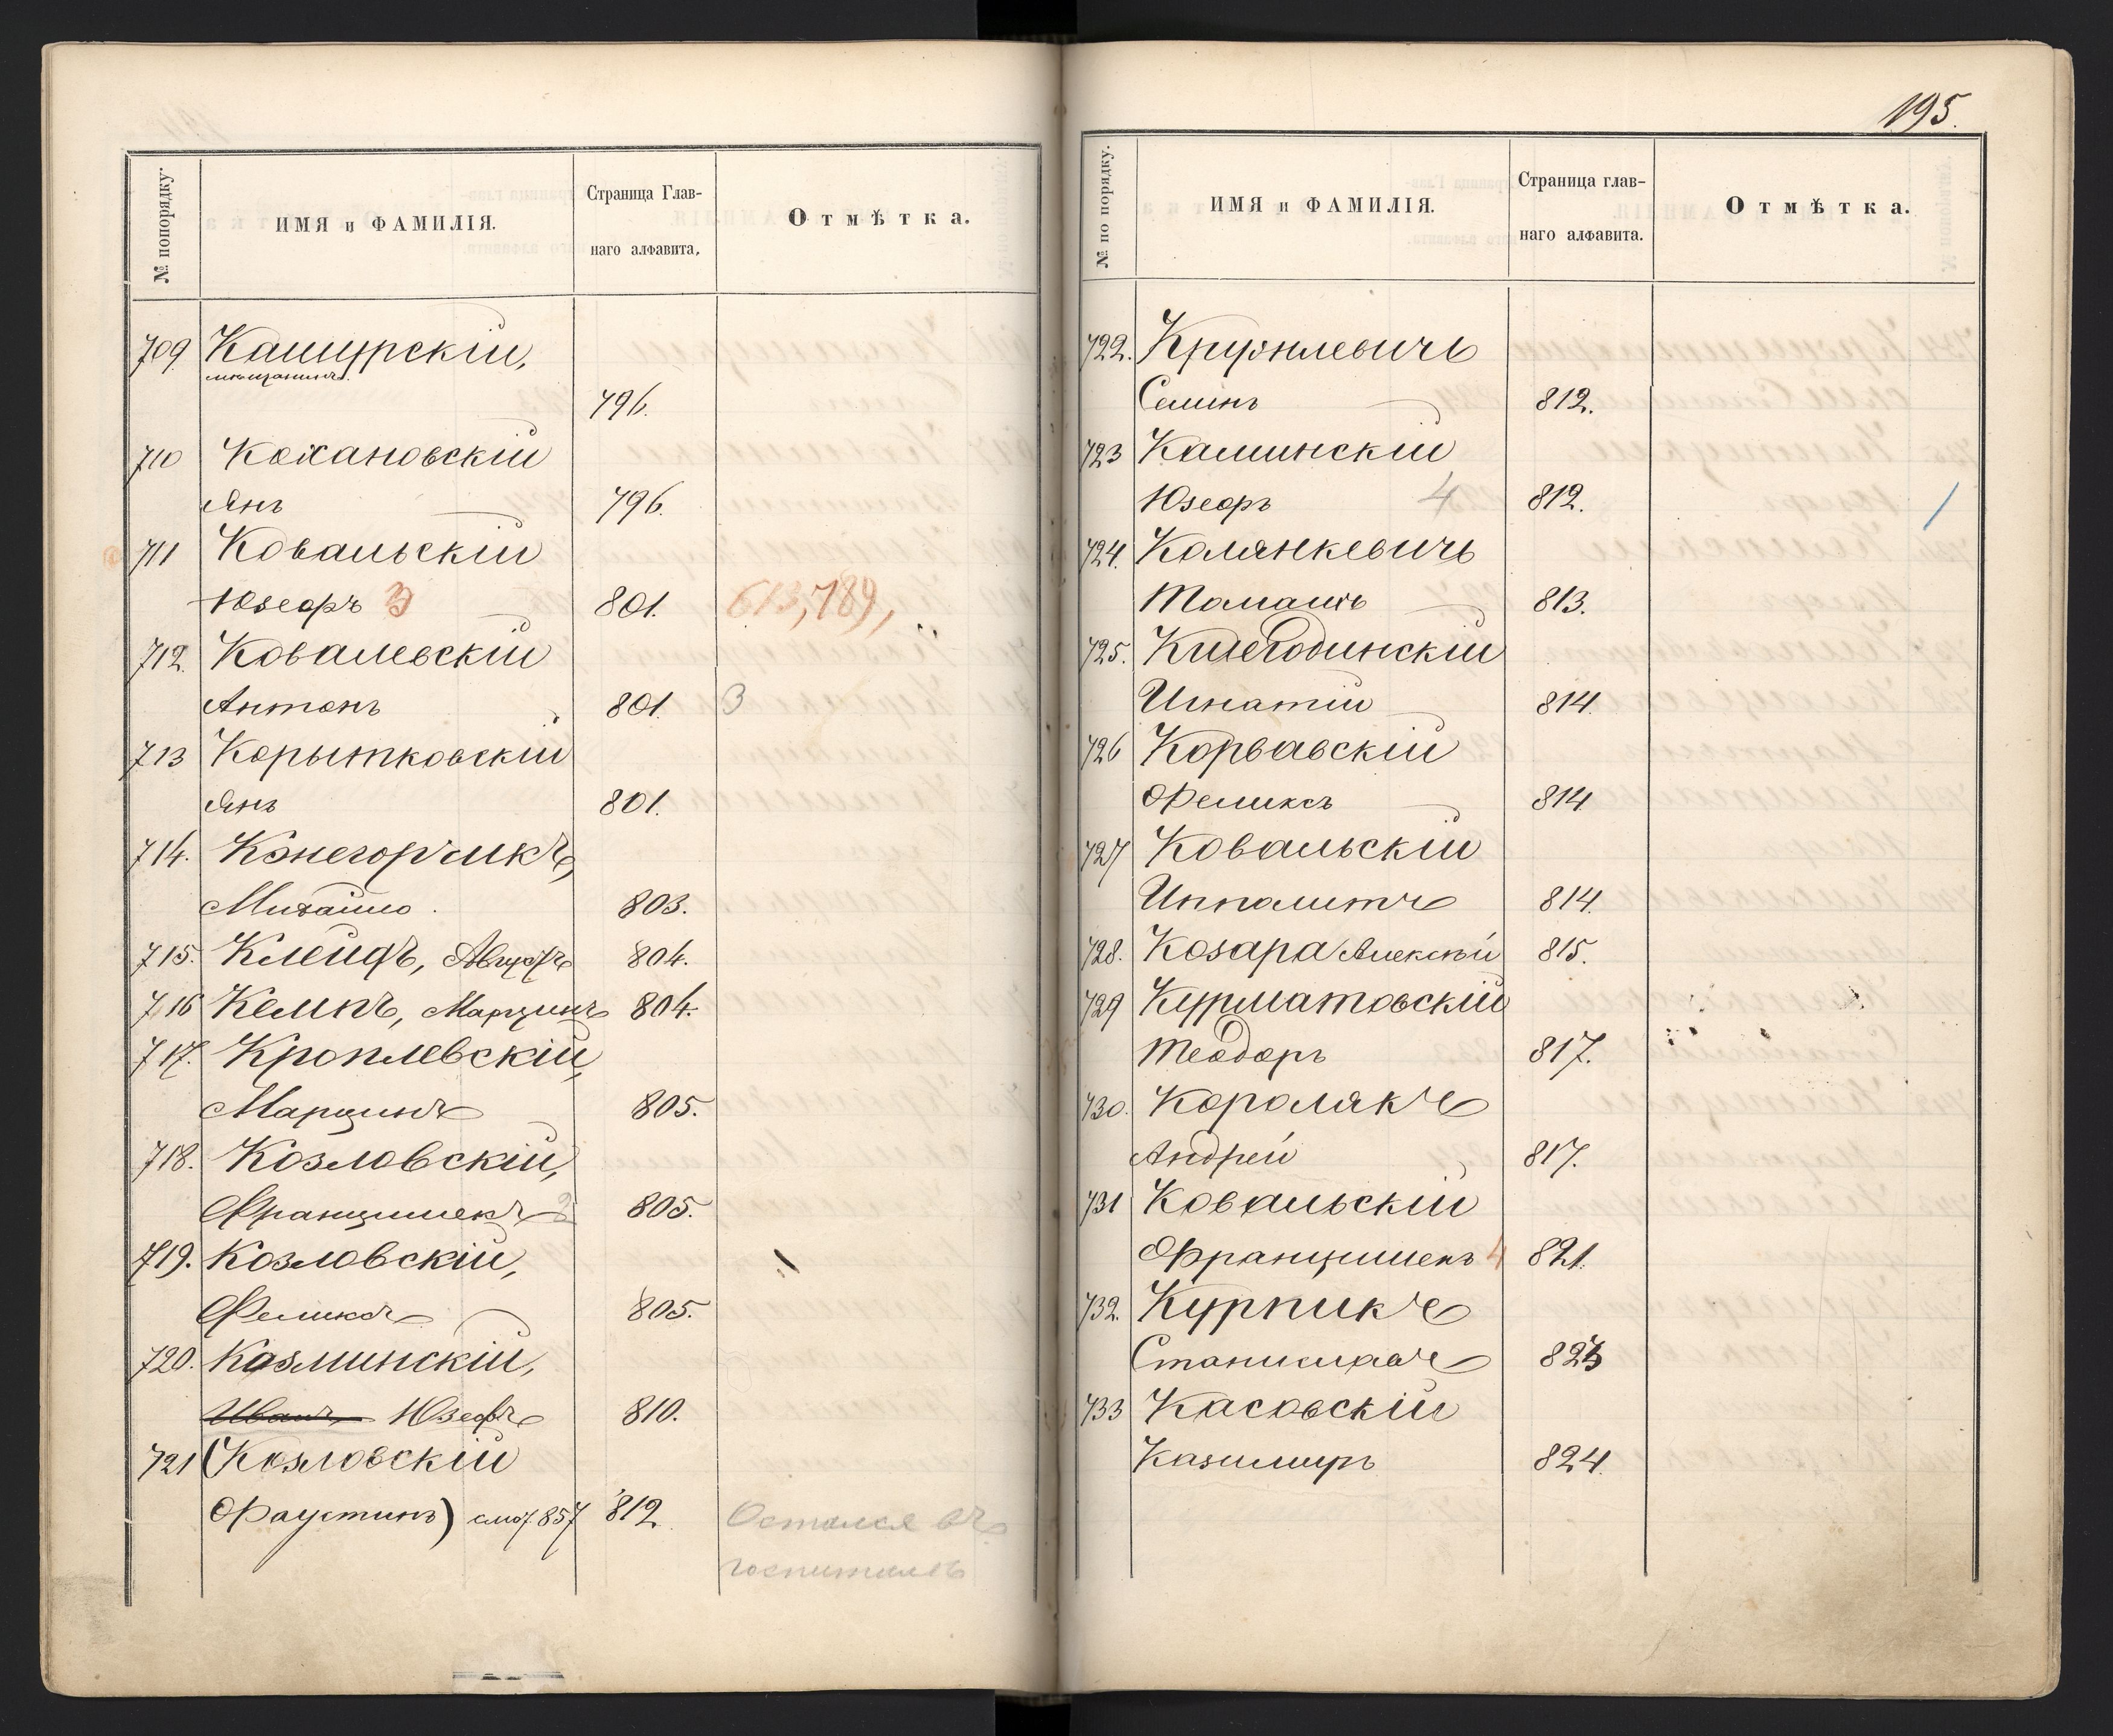 № попорядку.
ИМЯ и ФАМИЛІЯ.
Страница Глав-
наго алфавита,
Отмѣтка.
709 Кашурскій,
мѣщанинъ.
796.
710 Кохановскій
Янъ 796.
711 Ковальскій
Юзефъ 3 801. 613,789,
712. Ковалевскій
Антонъ 801. 3
713 Корытковскій
Янъ 801.
714.
Михайло. 803.
715. Клейфъ, Августъ 804.
716 Кемпъ, Марцинъ 804.
717. Кроплевскій,
Марцинъ 805.
718. Козловскій,
Францишекъ 2 805.
719. Козловскій,
Феликсъ 805.
720. Казминскій,
Иванъ Юзефъ 810.
721 (Козловскій
Фаустинъ) 857 812. Остался въ
госпиталѣ
195.
№ по порядку.
ИМЯ и ФАМИЛІЯ.
Страница глав-
наго алфавита.
Отмѣтка.
722. Крузнлевичъ
Семинъ 812.
723 Каминскій
Юзефъ 4 812.
724. Колянкевичъ
Томашъ 813.
725.
Игнатій 814.
726 Корвавскій
Феликсъ 814
727 Ковальскій
Ипполитъ 814.
728. Козара Алексѣй 815.
729 Курматовскій
Теодоръ 817.
730. Королякъ
Андрей 817.
731 Ковальскій
Францишекъ 4 821.
732. Курпикъ
Станиславъ 823
733 Касовскій
Казимиръ 824.